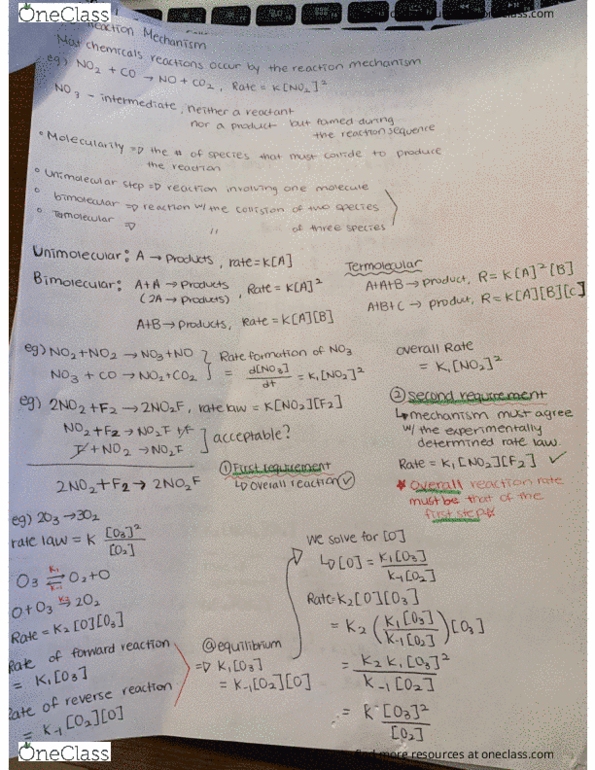 OneClass
oneclass.com
Reaction Mechanism
Most chemicals reactions occur by the reaction mechanism
eg) NO₂ + CO → NO + CO₂ , Rate = K[NO₂]²
NO₃ - intermediate, neither a reactant
nor a product but formed during
the reaction sequence
° Molecularity => the # of species that must collide to produce
the reaction
° Unimolecular step => reaction involving one molecule
° bimolecular => reaction w/ the collision of two species
° Termolecular => " of three species
Unimolecular: A → Products , rate = K[A]
Bimolecular: A+A → Products , Rate = K[A]²
(2A → Products)
A+B → Products, Rate = K[A][B]
Termolecular
A+A+B → product, R = K[A]²[B]
A+B+C → product, R = K[A][B][C]
eg) NO₂ + NO₂ → NO₃ + NO
NO₃ + CO → NO₂ + CO₂
Rate formation of NO₃
= d[NO₃]/dt = K₁[NO₂]²
overall Rate
= K₁[NO₂]²
eg) 2NO₂ + F₂ → 2NO₂F , rate law = K[NO₂][F₂]
NO₂ + F₂ → NO₂F + F
F + NO₂ → NO₂F
acceptable?
2NO₂ + F₂ → 2NO₂F
① First requirement
↳ overall reaction ✓
② Second requirement
↳ mechanism must agree
w/ the experimentally
determined rate law.
Rate = K₁[NO₂][F₂] ✓
* Overall reaction rate
must be that of the
first step *
eg) 2O₃ → 3O₂
rate law = K [O₃]²/[O₂]
O₃ ⇌ O₂ + O
K₁
K₋₁
O + O₃ → 2O₂
K₂
Rate = K₂[O][O₃]
Rate of forward reaction
= K₁[O₃]
Rate of reverse reaction
= K₋₁[O₂][O]
@equilibrium
=> K₁[O₃]
= K₋₁[O₂][O]
We solve for [O]
↳ [O] = K₁[O₃]/K₋₁[O₂]
Rate = K₂[O][O₃]
= K₂ (K₁[O₃]/K₋₁[O₂]) [O₃]
= K₂K₁[O₃]²/K₋₁[O₂]
= K [O₃]²/[O₂]
OneClass
find more resources at oneclass.com